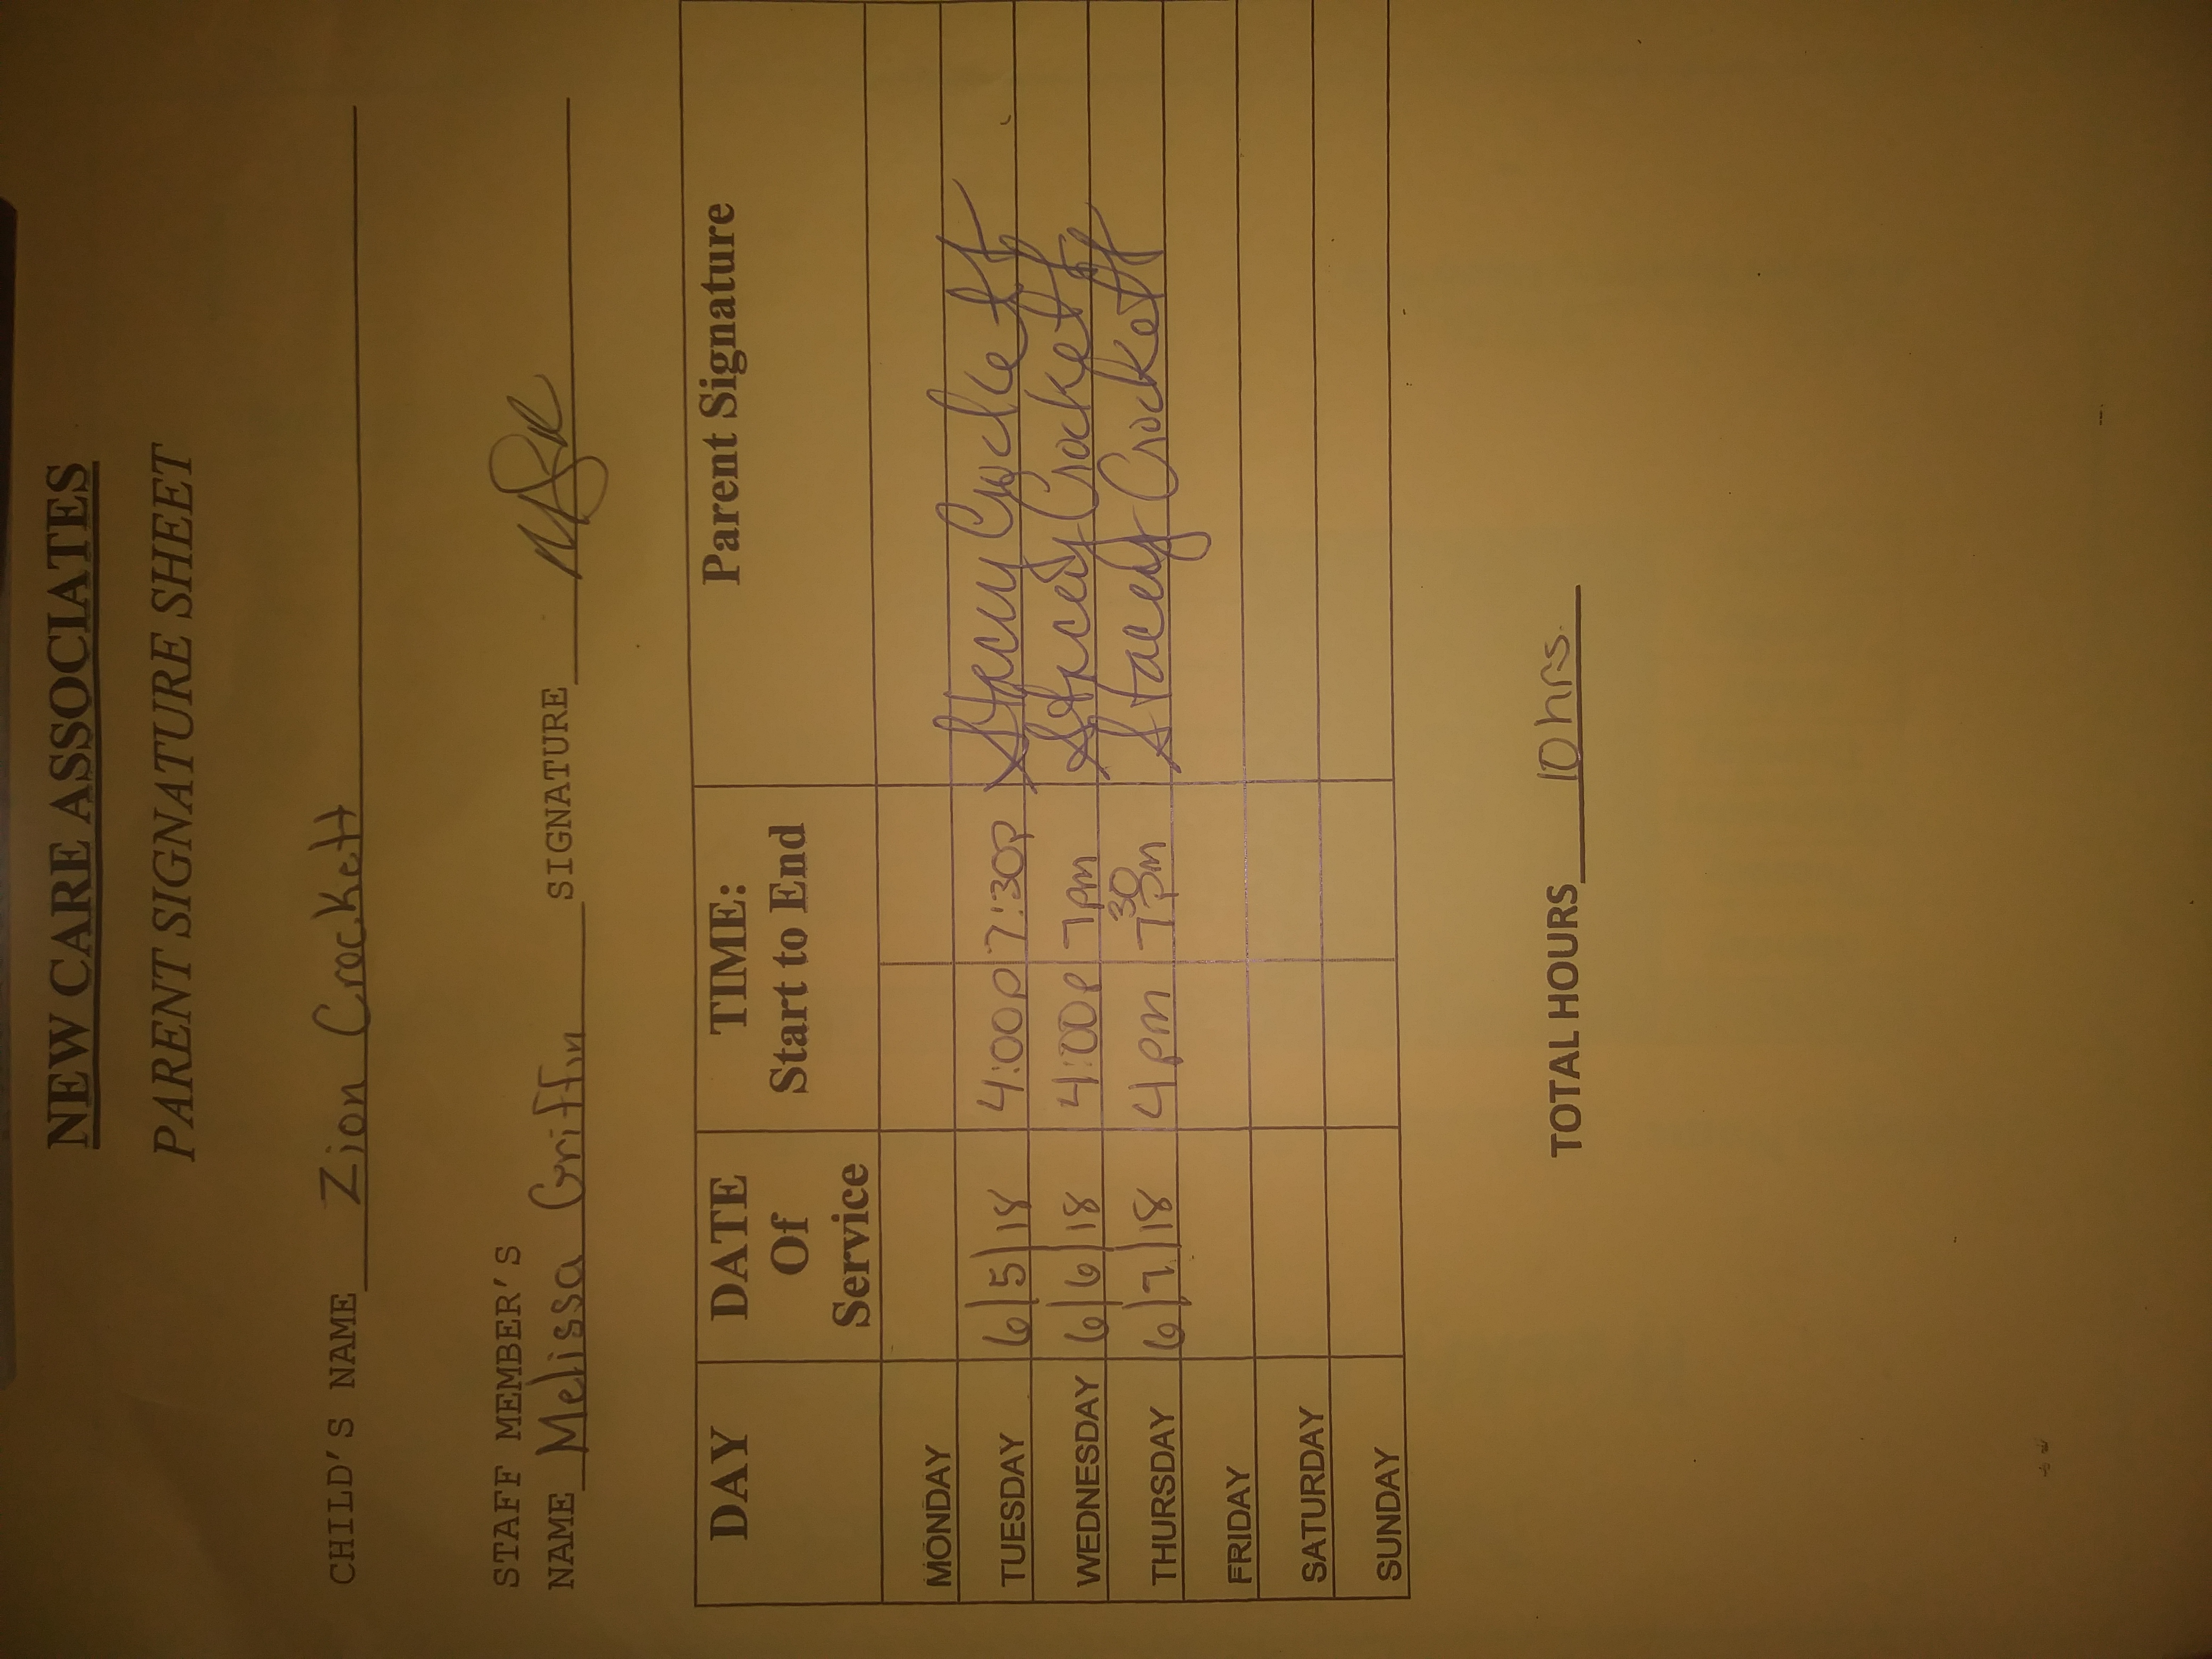 NEW CARE ASSOCIATES
PARENT SIGNATURE SHEET
CHILD'S NAME Zion Crockett
STAFF MEMBER'S
NAME Melissa Griffin SIGNATURE
DAY DATE Of Service TIME: Start to End Parent Signature
MONDAY
TUESDAY 6/5/18 4:00p 7:30p Stacey Crockett
WEDNESDAY 6/6/18 4:00p 7pm Stacey Crockett
THURSDAY 6/7/18 4pm 7 30 pm Stacey Crockett
FRIDAY
SATURDAY
SUNDAY
TOTAL HOURS 10 hrs.